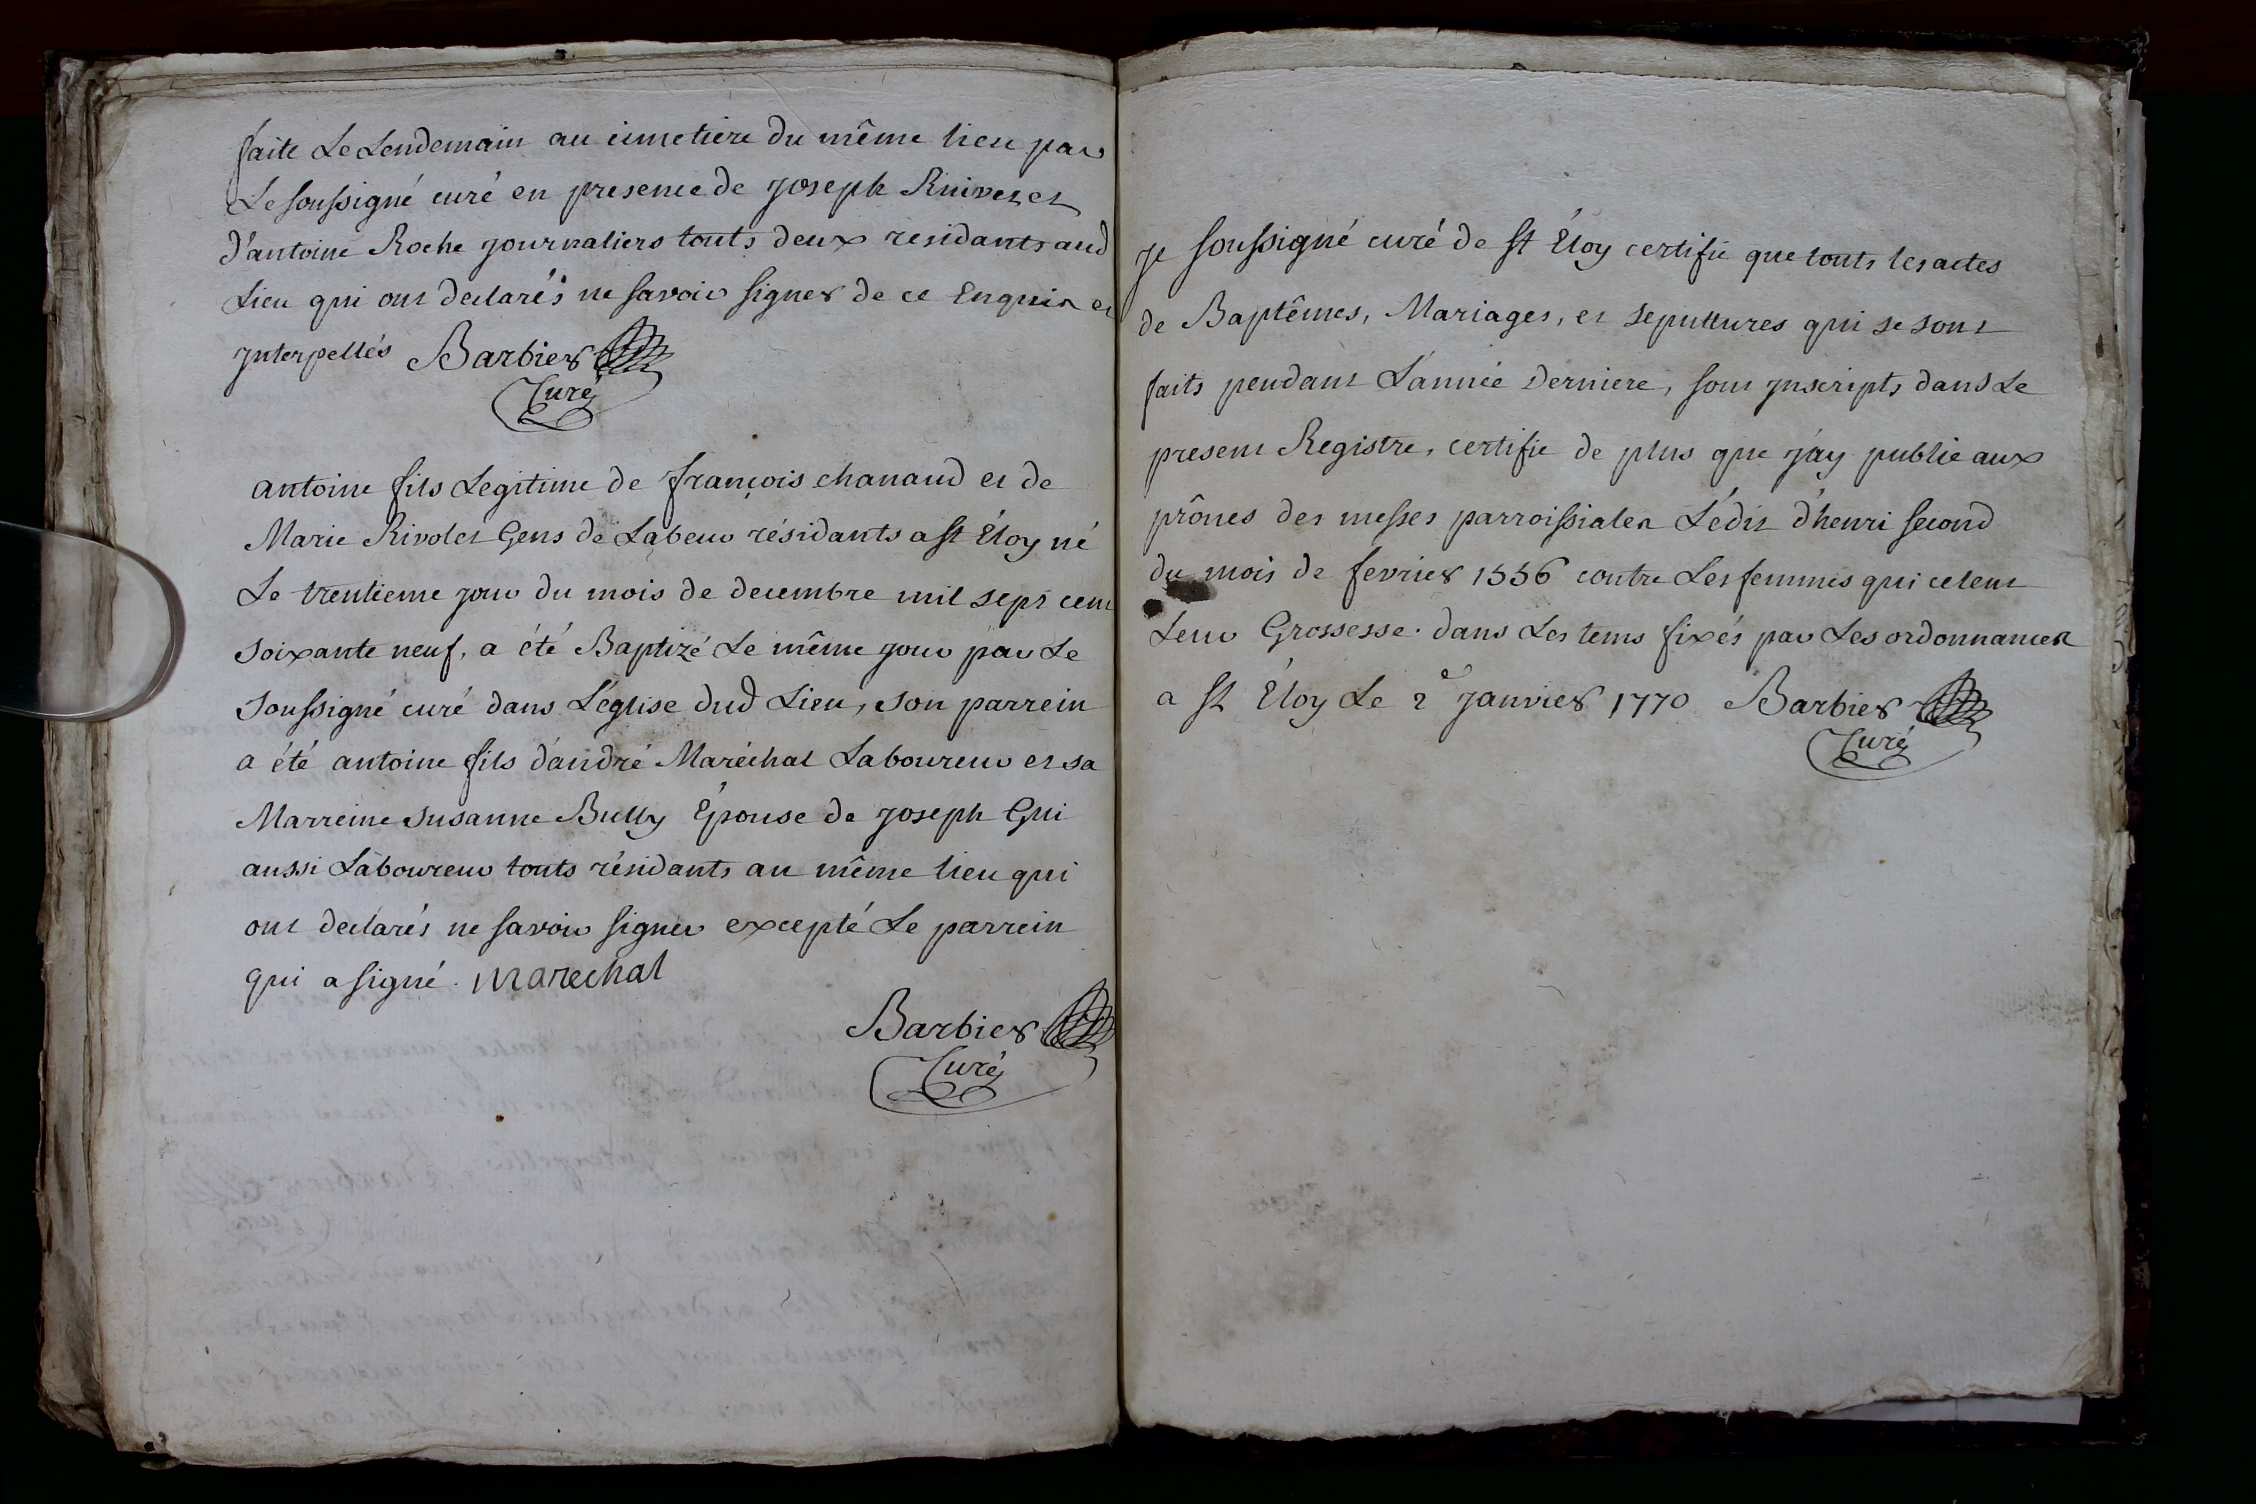 faite Le Lendemain au cimetiere du même lieu par
Le soussigné curé en presence de joseph Rnivet et
d'antoine Roche journaliers touts deux residants aud
Lieu qui ont declarés ne savoir signer de ce Enquis et
jnterpellés Barbier
Curé
antoine fils Legitime de françois chanaud et de
Marie Rivolet Gens de Labeur résidants a st Éloy né
Le trentieme jour du mois de decembre mil sept cent
soixante neuf, a été Baptizé Le même jour par Le
soussigné curé dans L'église dud Lieu, son parrein
a été antoine fils d'andré Maréchal Laboureur et sa
Marreine susanne Bully Épouse de joseph Gui
aussi Laboureur touts résidants au même lieu qui
ont declarés ne savoir signer excepté Le parrein
qui a signé. marechal
Barbier
Curé
je soussigné curé de st Éloy certifie que touts les actes
de Baptêmes, Mariages, et sepulttures qui se sont
faits pendant L'année derniere, sont jnscripts dans Le
present Registre, certifie de plus que j'ay publié aux
prônes des messes parroissiales L'édit d'henri second
du mois de fevrier 1556 contre Les femmes qui celent
Leur Grossesse. dans Les tems fixés par Les ordonnances
a st Éloy Le 2e janvier 1770 Barbier
Curé